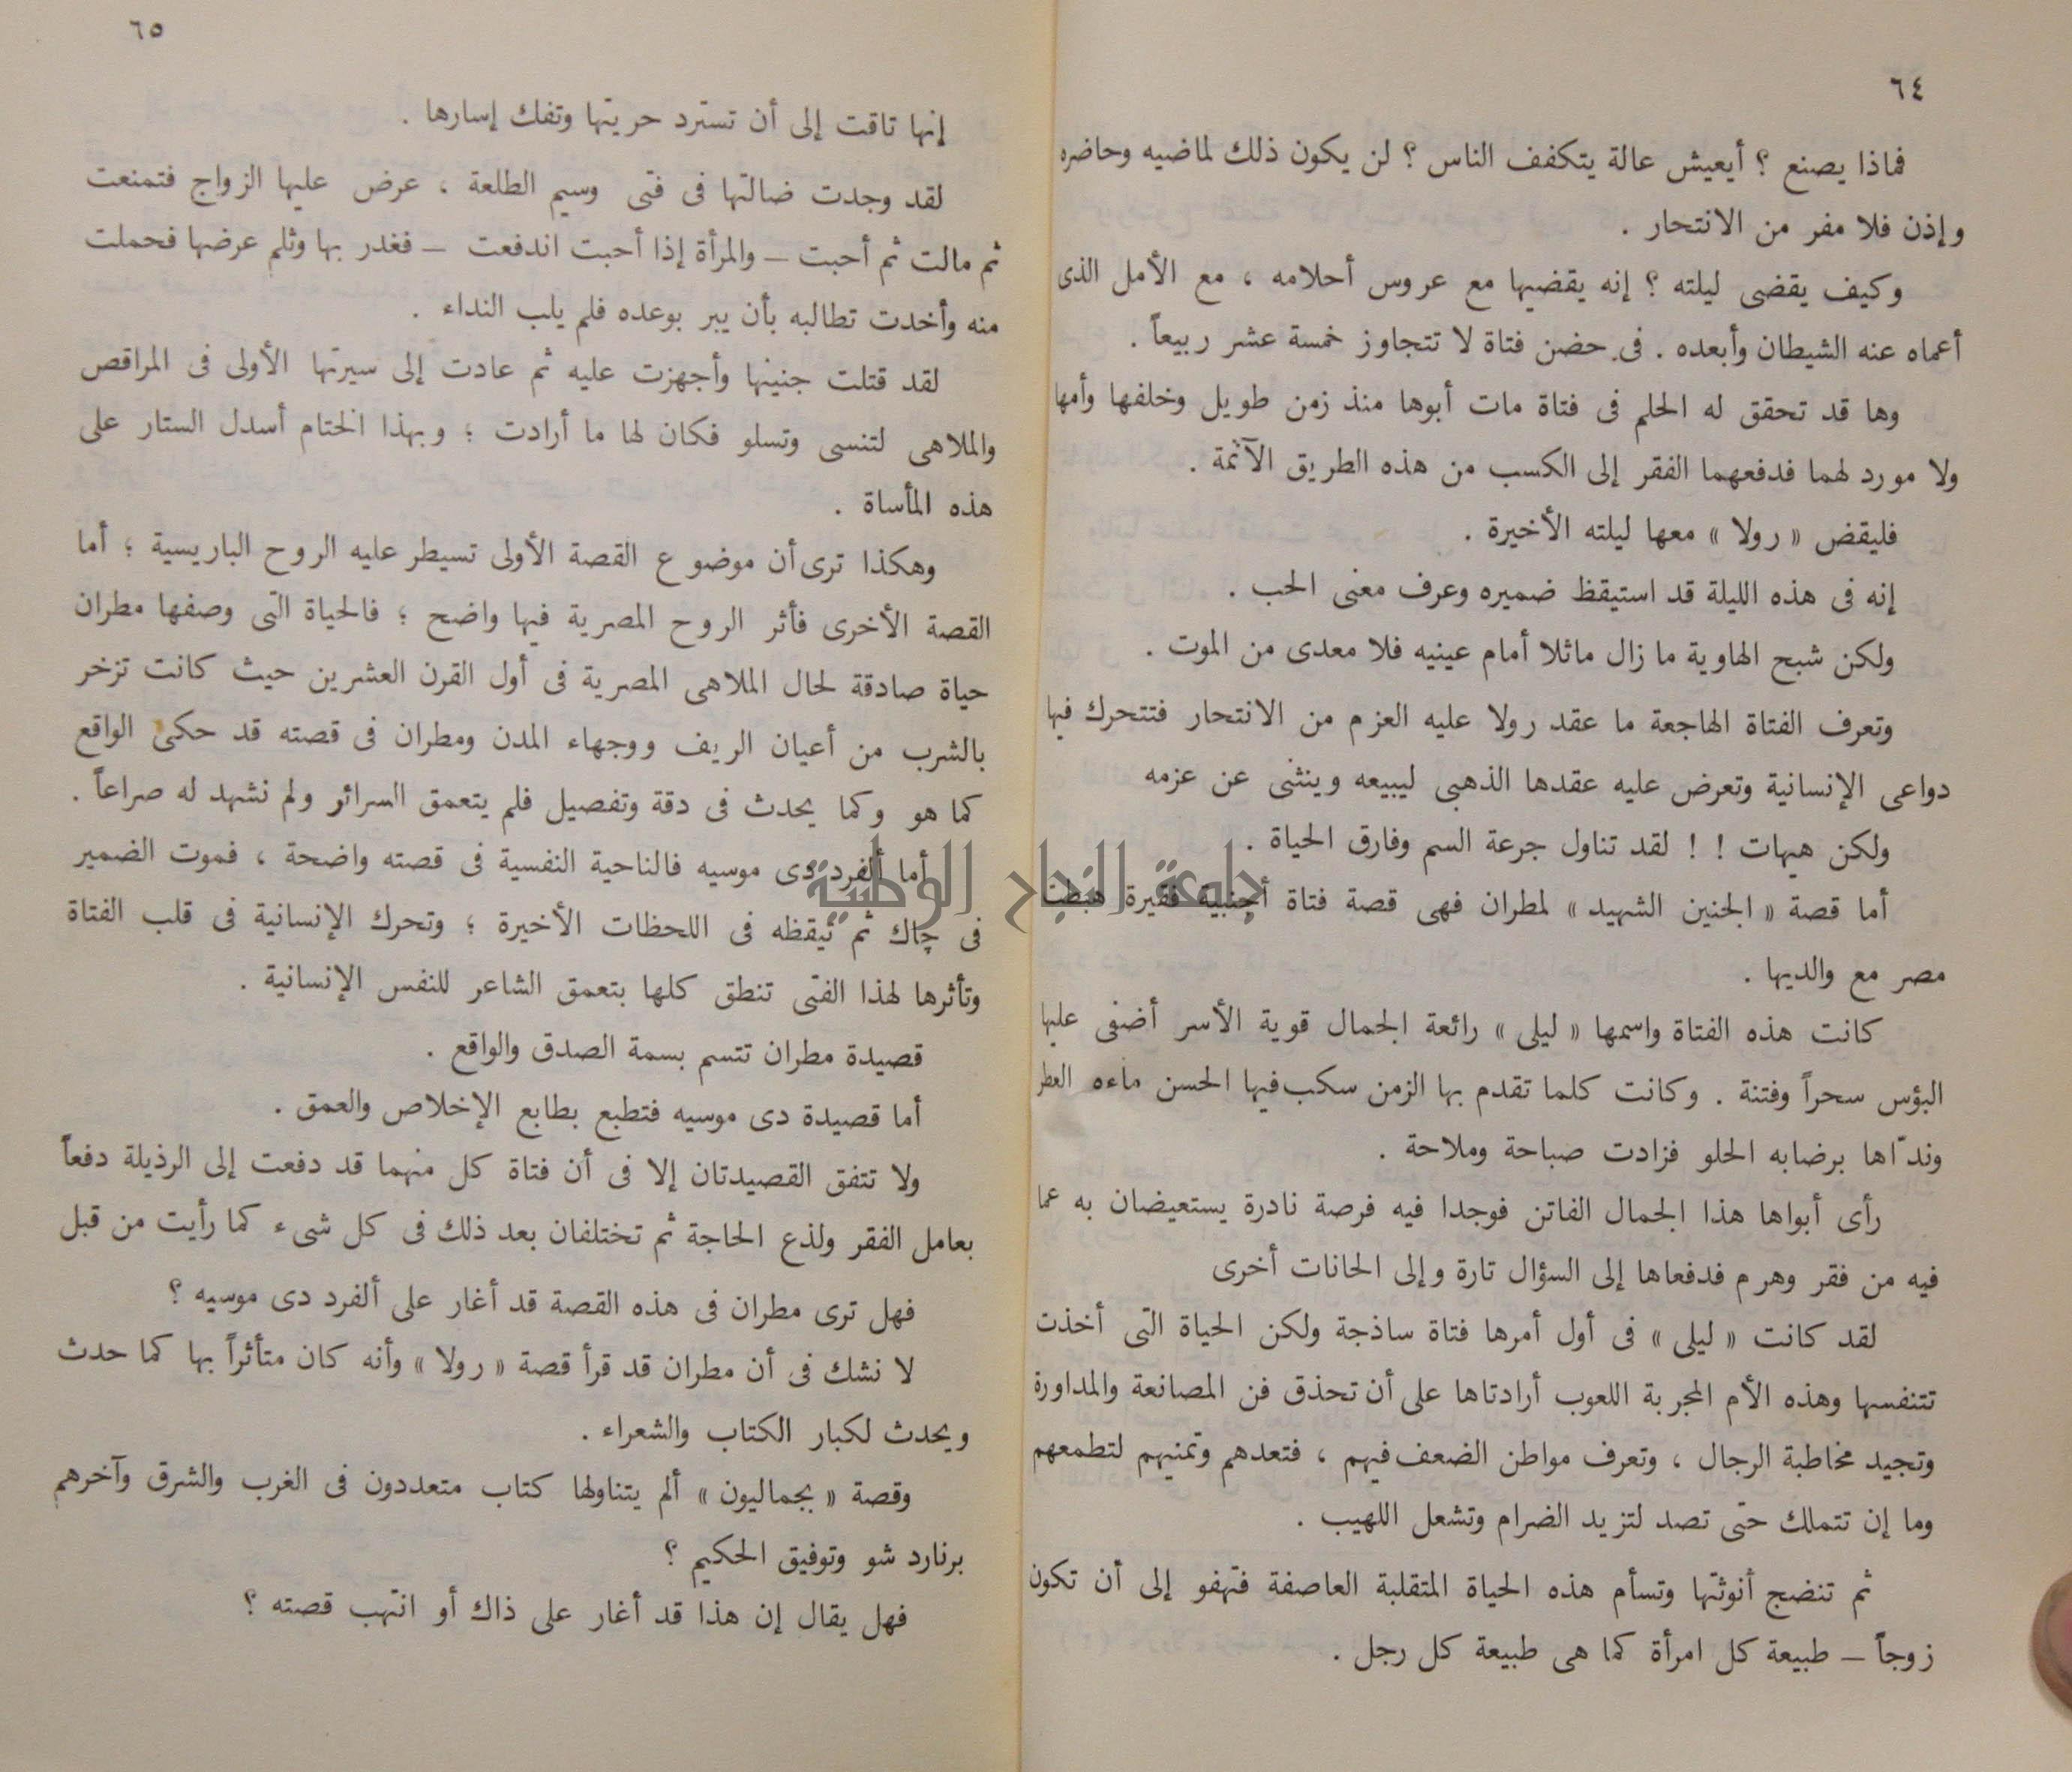 ٦٤
فماذا يصنع ؟ أيعيش عالة يتكفف الناس ؟ لن يكون ذلك لماضيه وحاضره
وإذن فلا مفر من الانتحار .
وكيف يقضى ليلته ؟ إنه يقضيها مع عروس أحلامه ، مع الأمل الذى
أعماه عنه الشيطان وأبعده . فى حضن فتاة لا تتجاوز خمسة عشر ربيعاً .
وها قد تحقق له الحلم فى فتاة مات أبوها منذ زمن طويل وخلفها وأمها
ولا مورد لهما فدفعهما الفقر إلى الكسب من هذه الطريق الآثمة .
فليقض « رولا » معها ليلته الأخيرة .
إنه فى هذه الليلة قد استيقظ ضميره وعرف معنى الحب .
ولكن شبح الهاوية ما زال ماثلا أمام عينيه فلا معدى من الموت .
وتعرف الفتاة الهاجعة ما عقد رولا عليه العزم من الانتحار فتتحرك فيها
دواعى الإنسانية وتعرض عليه عقدها الذهبى ليبيعه وينثنى عن عزمه
ولكن هيهات ! ! لقد تناول جرعة السم وفارق الحياة .
أما قصة « الجنين الشهيد » لمطران فهى قصة فتاة أجنبية فقيرة هبطت
مصر مع والديها .
كانت هذه الفتاة واسمها « ليلى » رائعة الجمال قوية الأسر أضفى عليها
البؤس سحراً وفتنة . وكانت كلما تقدم بها الزمن سكب فيها الحسن ماءه العطر
وندّاها برضابه الحلو فزادت صباحة وملاحة .
رأى أبواها هذا الجمال الفاتن فوجدا فيه فرصة نادرة يستعيضان به عما
فيه من فقر وهرم فدفعاها إلى السؤال تارة وإلى الحانات أخرى
لقد كانت « ليلى » فى أول أمرها فتاة ساذجة ولكن الحياة التى أخذت
تتنفسها وهذه الأم المجربة اللعوب أرادتاها على أن تحذق فن المصانعة والمداورة
وتجيد مخاطبة الرجال ، وتعرف مواطن الضعف فيهم ، فتعدهم وتمنيهم لتطمعهم
وما إن تتملك حتى تصد لتزيد الضرام وتشعل اللهيب .
ثم تنضج أنوثتها وتسأم هذه الحياة المتقلبة العاصفة فتهفو إلى أن تكون
زوجاً – طبيعة كل امرأة كما هى طبيعة كل رجل .
٦٥
إنها تاقت إلى أن تسترد حريتها وتفك إسارها .
لقد وجدت ضالتها فى فتى وسيم الطلعة ، عرض عليها الزواج فتمنعت
ثم مالت ثم أحبت – والمرأة إذا أحبت اندفعت – فغدر بها وثلم عرضها فحملت
منه وأخدت تطالبه بأن يبر بوعده فلم يلب النداء .
لقد قتلت جنينها وأجهزت عليه ثم عادت إلى سيرتها الأولى فى المراقص
والملاهى لتنسى وتسلو فكان لها ما أرادت ؛ وبهذا الختام أسدل الستار على
هذه المأساة .
وهكذا ترى أن موضوع القصة الأولى تسيطر عليه الروح الباريسية ؛ أما
القصة الأخرى فأثر الروح المصرية فيها واضح ؛ فالحياة التى وصفها مطران
حياة صادقة لحال الملاهى المصرية فى أول القرن العشرين حيث كانت تزخر
بالشرب من أعيان الريف ووجهاء المدن ومطران فى قصته قد حكى الواقع
كما هو وكما يحدث فى دقة وتفصيل فلم يتعمق السرائر ولم نشهد له صراعاً .
أما ألفرد دى موسيه فالناحية النفسية فى قصته واضحة ، فموت الضمير
فى چاك ثم تيقظه فى اللحظات الأخيرة ؛ وتحرك الإنسانية فى قلب الفتاة
وتأثرها لهذا الفتى تنطق كلها بتعمق الشاعر للنفس الإنسانية .
قصيدة مطران تتسم بسمة الصدق والواقع .
أما قصيدة دى موسيه فتطبع بطابع الإخلاص والعمق .
ولا تتفق القصيدتان إلا فى أن فتاة كل منهما قد دفعت إلى الرذيلة دفعاً
بعامل الفقر ولذع الحاجة ثم تختلفان بعد ذلك فى كل شىء كما رأيت من قبل
فهل ترى مطران فى هذه القصة قد أغار على ألفرد دى موسيه ؟
لا نشك فى أن مطران قد قرأ قصة « رولا » وأنه كان متأثراً بها كما حدث
ويحدث لكبار الكتاب والشعراء .
وقصة « بجماليون » ألم يتناولها كتاب متعددون فى الغرب والشرق وآخرهم
برنارد شو وتوفيق الحكيم ؟
فهل يقال إن هذا قد أغار على ذاك أو انتهب قصته ؟
جامعة النجاح الوطنية